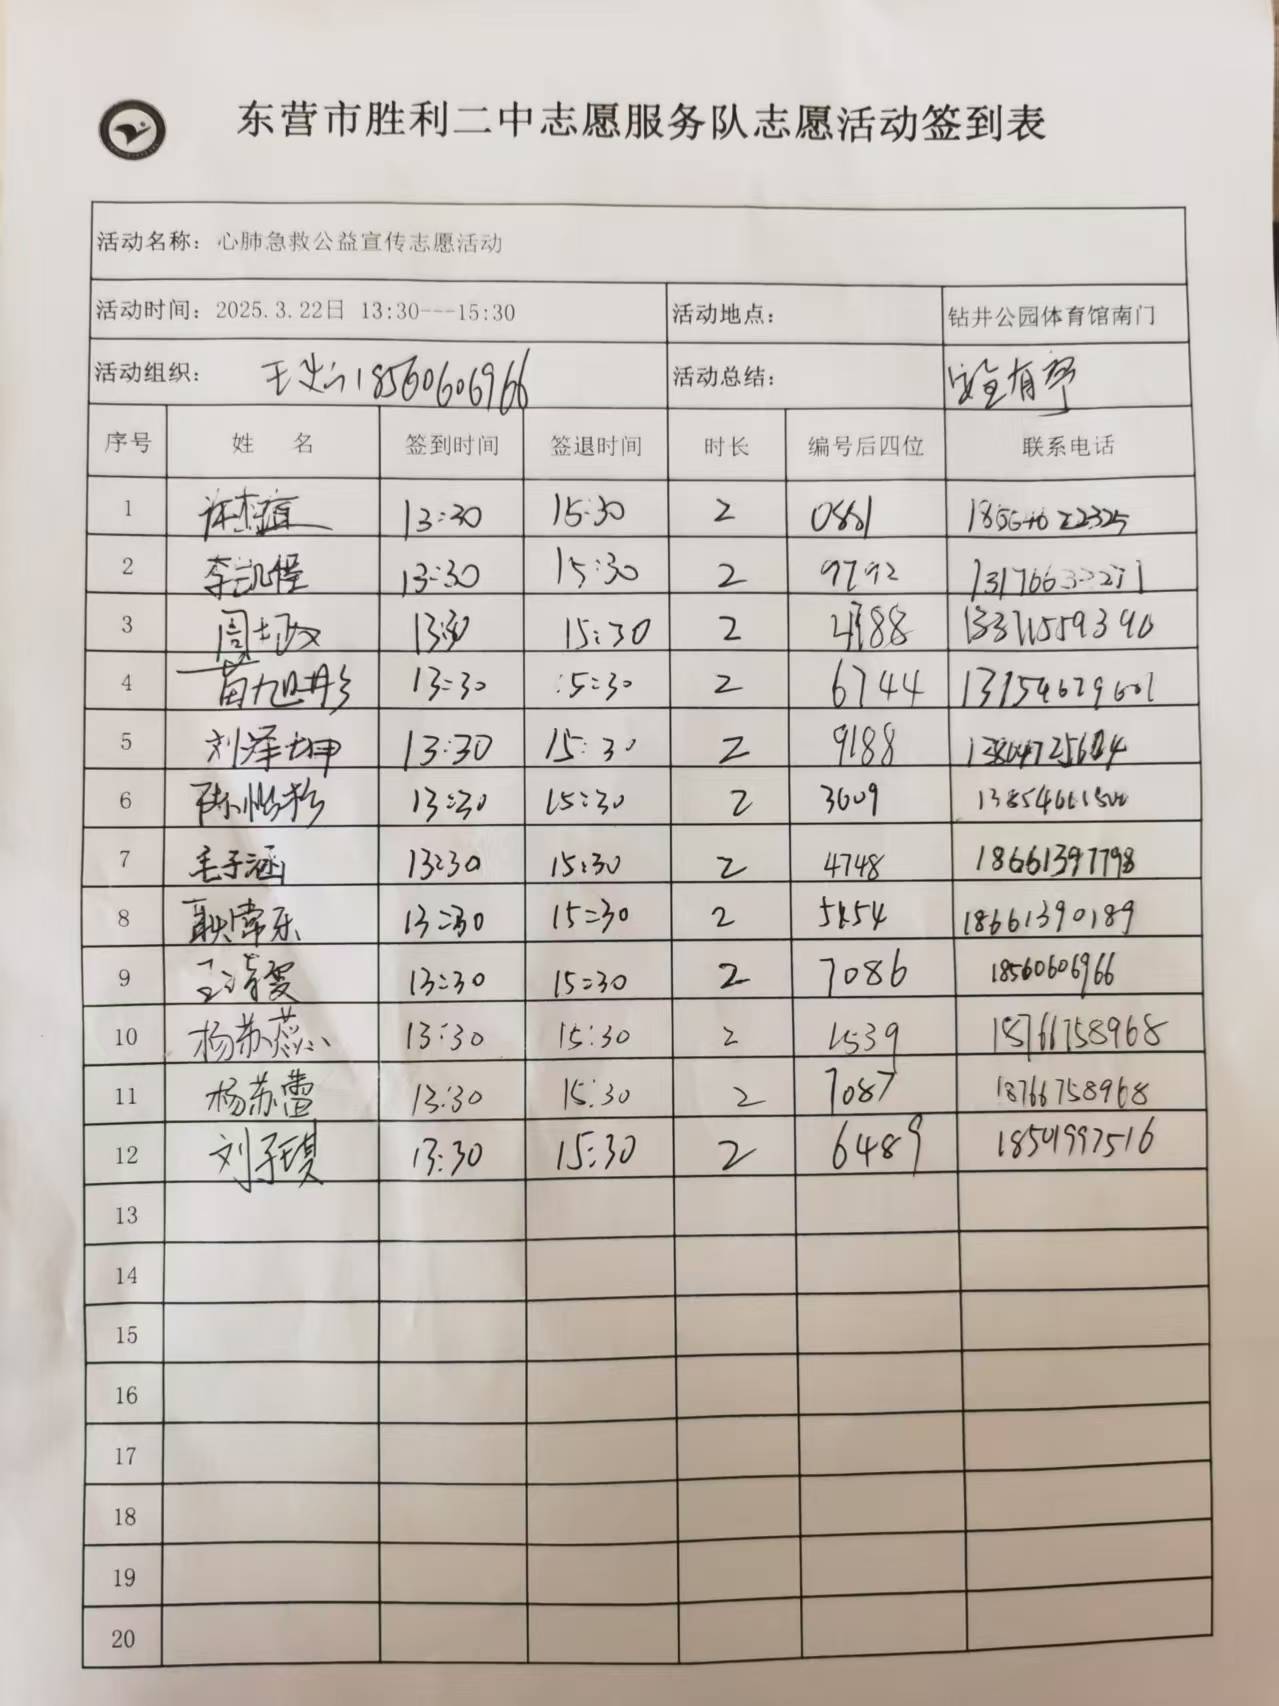 东营市胜利二中志愿服务队志愿活动签到表
活动名称：心肺急救公益宣传志愿活动
活动时间：2025.3.22日 13:30---15:30 活动地点： 钻井公园体育馆南门
活动组织： 18560606966 活动总结：
序号 姓 名 签到时间 签退时间 时长 编号后四位 联系电话
1 13:30 15:30 2
2 13:30 15:30 2 9792
3 15:30 2
4 苗旭彤 13:30 15:30 2 6744
5 刘泽坤 13:30 15:30 2 9188
6 13:30 15:30 2 3609
7 毛子涵 13:30 15:30 2 4748 18661397798
8 13:30 15:30 2 18661390189
9 13:30 15:30 2 7086 18560606966
10 杨苏蕊 13:30 15:30 2 1539 18766758968
11 杨苏蕾 13:30 15:30 2 7087 18766758968
12 刘子琪 13:30 15:30 2 6489 18501997516
13
14
15
16
17
18
19
20